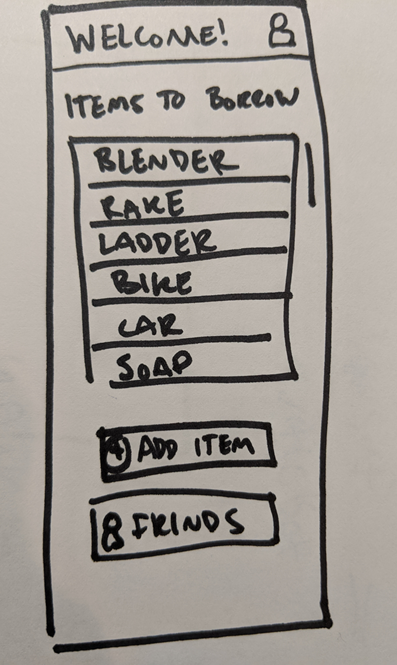 WELCOME!
ITEMS TO BORROW
BLENDER
RAKE
LADDER
BIKE
CAR
SOAP
+ ADD ITEM
FRINDS